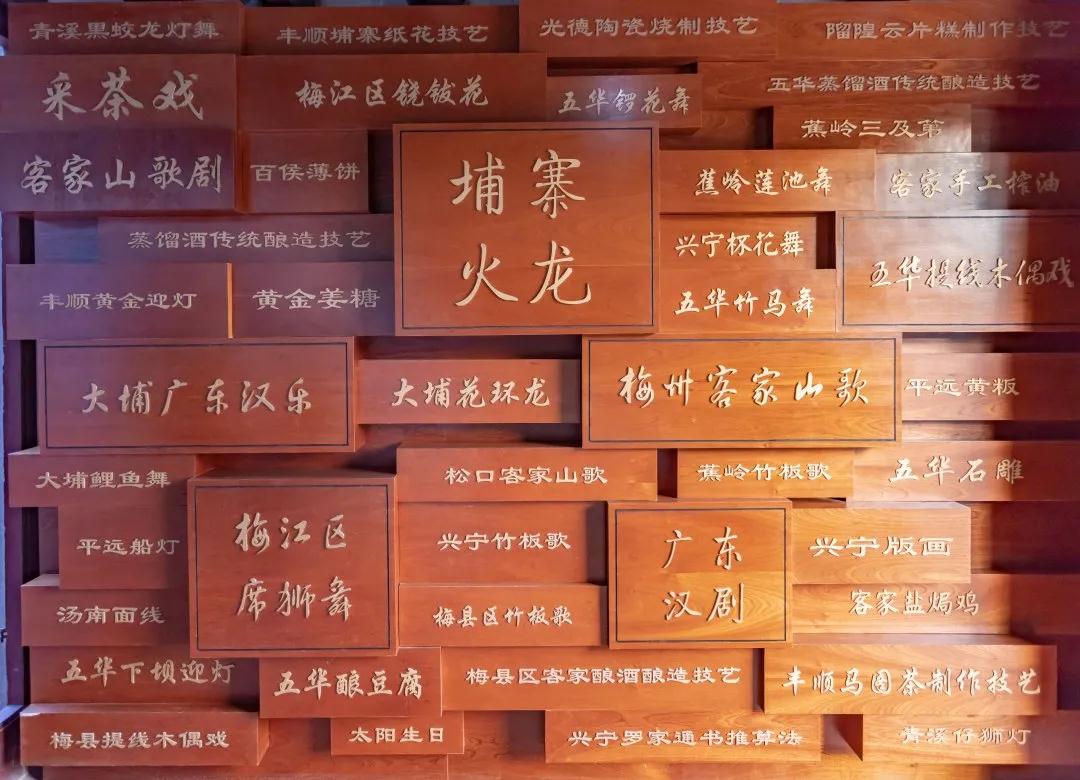 青溪黑蛟龙灯舞
丰顺埔寨纸花技艺
光德陶瓷烧制技艺
𨻧隍云片糕制作技艺
采茶戏
梅江区铙钹花
五华锣花舞
五华蒸馏酒传统酿造技艺
蕉岭三及第
客家山歌剧
百侯薄饼
埔寨
火龙
蕉岭莲池舞
客家手工榨油
蒸馏酒传统酿造技艺
兴宁杯花舞
五华提线木偶戏
丰顺黄金迎灯
黄金姜糖
五华竹马舞
大埔广东汉乐
大埔花环龙
梅州客家山歌
平远黄粄
大埔鲤鱼舞
松口客家山歌
蕉岭竹板歌
五华石雕
平远船灯
梅江区
席狮舞
兴宁竹板歌
广东
汉剧
兴宁版画
汤南面线
梅县区竹板歌
客家盐焗鸡
五华下坝迎灯
五华酿豆腐
梅县区客家酿酒酿造技艺
丰顺马图茶制作技艺
梅县提线木偶戏
太阳生日
兴宁罗家通书推算法
青溪仔狮灯